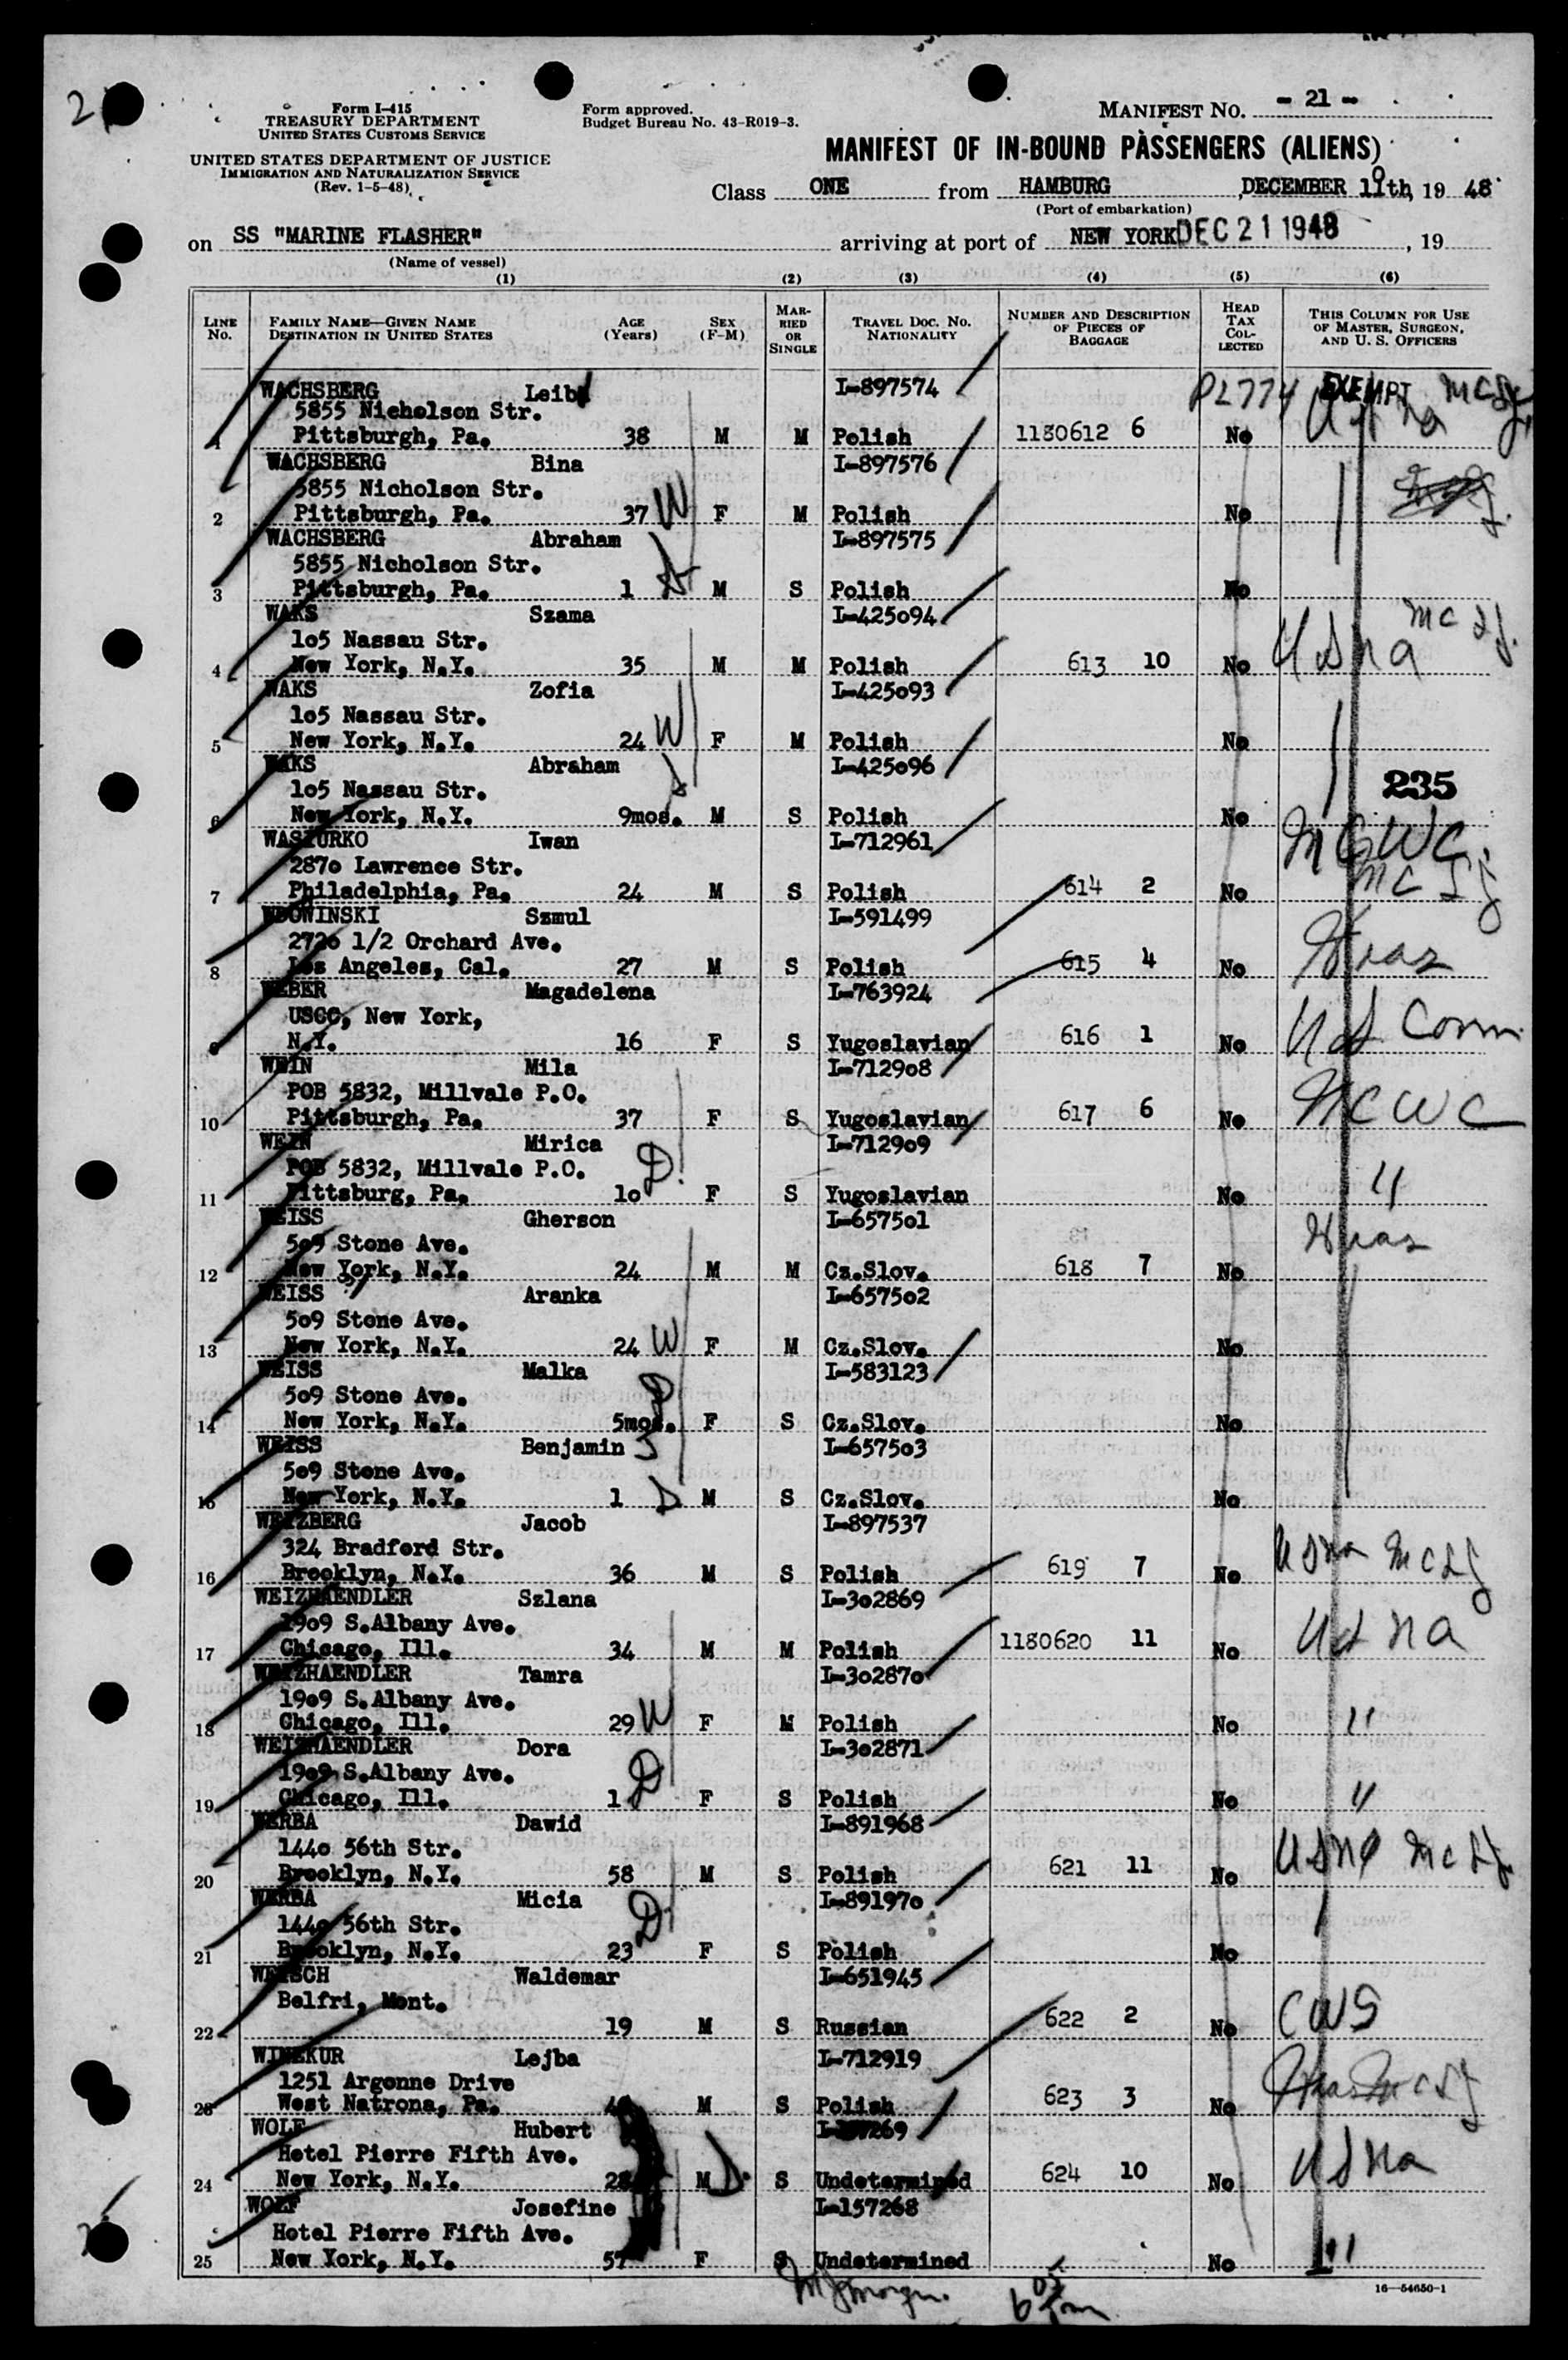 2
Form I-415
TREASURY DEPARTMENT
UNITED STATES CUSTOMS SERVICE
UNITED STATES DEPARTMENT OF JUSTICE
IMMIGRATION AND NATURALIZATION SERVICE
(Rev. 1-5-48)
Form approved.
Budget Bureau No. 43-R019-3.
MANIFEST NO. - 21 -
MANIFEST OF IN-BOUND PASSENGERS (ALIENS)
Class ONE from HAMBURG, DECEMBER 11th, 19 48
(Port of embarkation)
on SS "MARINE FLASHER" arriving at port of NEW YORK DEC 21 1948, 19
(Name of vessel)
(1) (2) (3) (4) (5) (6)
LINE No. FAMILY NAME—GIVEN NAME DESTINATION IN UNITED STATES AGE (Years) SEX (F-M) MARRIED OR SINGLE TRAVEL DOC. NO. NATIONALITY NUMBER AND DESCRIPTION OF PIECES OF BAGGAGE HEAD TAX COLLECTED THIS COLUMN FOR USE OF MASTER, SURGEON, AND U. S. OFFICERS
WACHSBERG Leib I-897574 PL774 EXEMPT
5855 Nicholson Str.
Pittsburgh, Pa. 38 M M Polish 1180612 6 No
WACHSBERG Bina I-897576
5855 Nicholson Str.
2 Pittsburgh, Pa. 37 W F M Polish No
WACHSBERG Abraham I-897575
5855 Nicholson Str.
3 Pittsburgh, Pa. 1 M S Polish No
WAKS Szama I-425o94
1o5 Nassau Str.
4 New York, N.Y. 35 M M Polish 613 10 No USna
WAKS Zofia I-425o93
1o5 Nassau Str.
5 New York, N.Y. 24 W F M Polish No
WAKS Abraham I-425o96
1o5 Nassau Str. 235
6 New York, N.Y. 9mos. M S Polish No
WASZURKO Iwan I-712961 NCWC
287o Lawrence Str.
7 Philadelphia, Pa. 24 M S Polish 614 2 No
WDOWINSKI Szmul I-591499
272o 1/2 Orchard Ave.
8 Los Angeles, Cal. 27 M S Polish 615 4 No Hias
WEBER Magadelena I-763924
USCC, New York,
9 N.Y. 16 F S Yugoslavian 616 1 No US Comm.
WEIN Mila I-7129o8
POB 5832, Millvale P.O.
10 Pittsburgh, Pa. 37 F S Yugoslavian 617 6 No NCWC
WEIN Mirica I-7129o9
POB 5832, Millvale P.O.
11 Pittsburg, Pa. 1o D F S Yugoslavian No "
WEISS Gherson I-6575o1
5o9 Stone Ave.
12 New York, N.Y. 24 M M Cz.Slov. 618 7 No Hias
WEISS Aranka I-6575o2
5o9 Stone Ave.
13 New York, N.Y. 24 W F M Cz.Slov. No
WEISS Malka I-583123
5o9 Stone Ave.
14 New York, N.Y. 5mos. F S Cz.Slov. No
WEISS Benjamin I-6575o3
5o9 Stone Ave.
15 New York, N.Y. 1 M S Cz.Slov. No
WEIZBERG Jacob I-897537
324 Bradford Str.
16 Brooklyn, N.Y. 36 M S Polish 619 7 No USna
WEIZHAENDLER Szlana I-3o2869
19o9 S.Albany Ave.
17 Chicago, Ill. 34 M M Polish 1180620 11 No USna
WEIZHAENDLER Tamra I-3o287o
19o9 S.Albany Ave.
18 Chicago, Ill. 29 W F M Polish No "
WEIZHAENDLER Dora I-3o2871
19o9 S.Albany Ave.
19 Chicago, Ill. 1 D F S Polish No "
WERBA Dawid I-891968
144o 56th Str.
20 Brooklyn, N.Y. 58 M S Polish 621 11 No USna
WERBA Micia I-89197o
144o 56th Str.
21 Brooklyn, N.Y. 23 D F S Polish No
Waldemar I-651945
Belfri, Mont.
22 19 M S Russian 622 2 No CWS
WINEKUR Lejba I-712919
1251 Argonne Drive
West Natrona, Pa. M S Polish 623 3 No
WOLF Hubert
Hotel Pierre Fifth Ave.
24 New York, N.Y. 28 M D S Undetermined 624 10 No USna
WOLF Josefine I-157268
Hotel Pierre Fifth Ave.
25 New York, N.Y. 57 F S Undetermined No "
16—54650-1